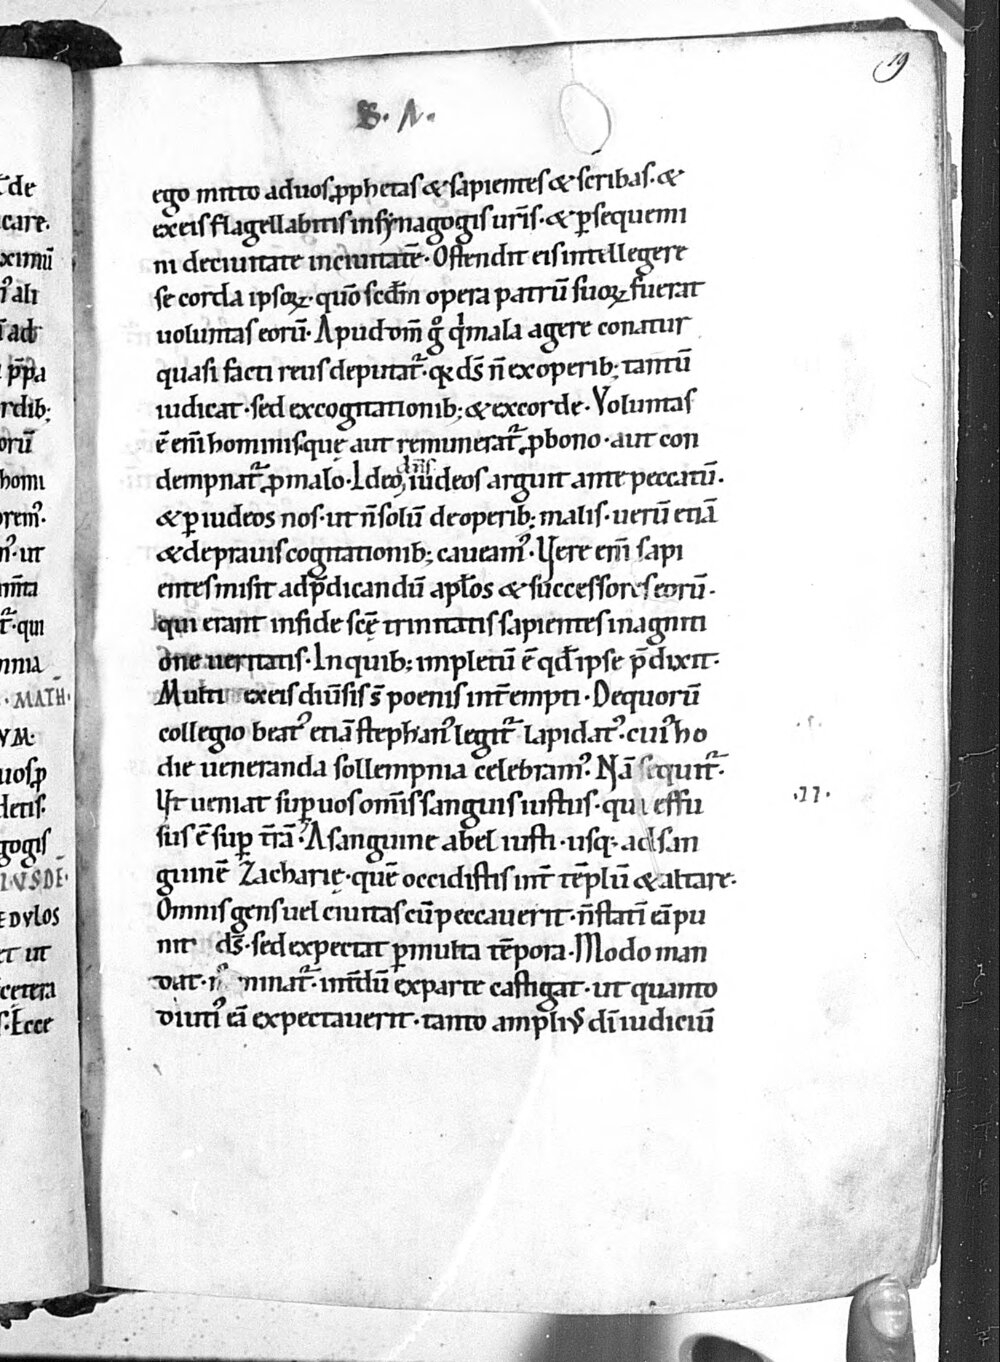 19
S. N.
ego mitto aduos ꝓphetas & sapientes & scribas. &
exeis flagellabitis insynagogis ur̄is. & ꝑsequemi
ni deciuitate inciuitatē. Ostendit eis intellegere
se corda ipsoꝝ. quō scd̄m opera patrū suoꝝ fuerat
uoluntas eorū. Apud om̄ g̊ qͥ mala agere conatur
quasi facti reus deputat᷑. qꝛ ds̄ n̄ ex operib; tantū
iudicat. sed excogitationib; & excorde. Voluntas
ē eni᷑ hominis quę aut remunerat᷑ ꝓ bono. aut con
dempnat᷑ ꝓ malo. Ideo dn̄s iudeos arguit ante peccatū.
& ꝑ iudeos nos. ut n̄ solū de operib; malis. uerū etiā
& de prauis cogitationib; caueamꝰ. Vere eni᷑ sapi
entes misit adp̄dicandū apl̄os & successores eorū.
qui erant infide scę̄ trinitatis sapientes in agniti
one ueritatis. Inquib; impletū ē qd̄ ipse p̄dixit.
Multi exeis diu᷑sis s̄ poenis int᷑empti. Dequorū
collegio beatꝰ etiā stephanꝰ legit᷑ lapidatꝰ. cuiꝰ ho
die ueneranda sollempnia celebramꝰ. Nā sequit᷑.
Vt ueniat suꝑ uos omīs sanguis iustus. qui effu
sus ē suꝑ t᷑rā. A sanguine abel iusti. usq; ad san
guinē Zacharię. quē occidistis int᷑ tēplū & altare.
.11.
Omnis gens uel ciuitas cū peccauerit. n̄ statī eā pu
nit ds̄. sed expectat ꝑ multa tēpora. Modo man
dat. minat᷑. int᷑dū ex parte castigat. ut quanto
diutiꝰ eā expectauerit. tanto ampliꝰ di᷑ iudiciū